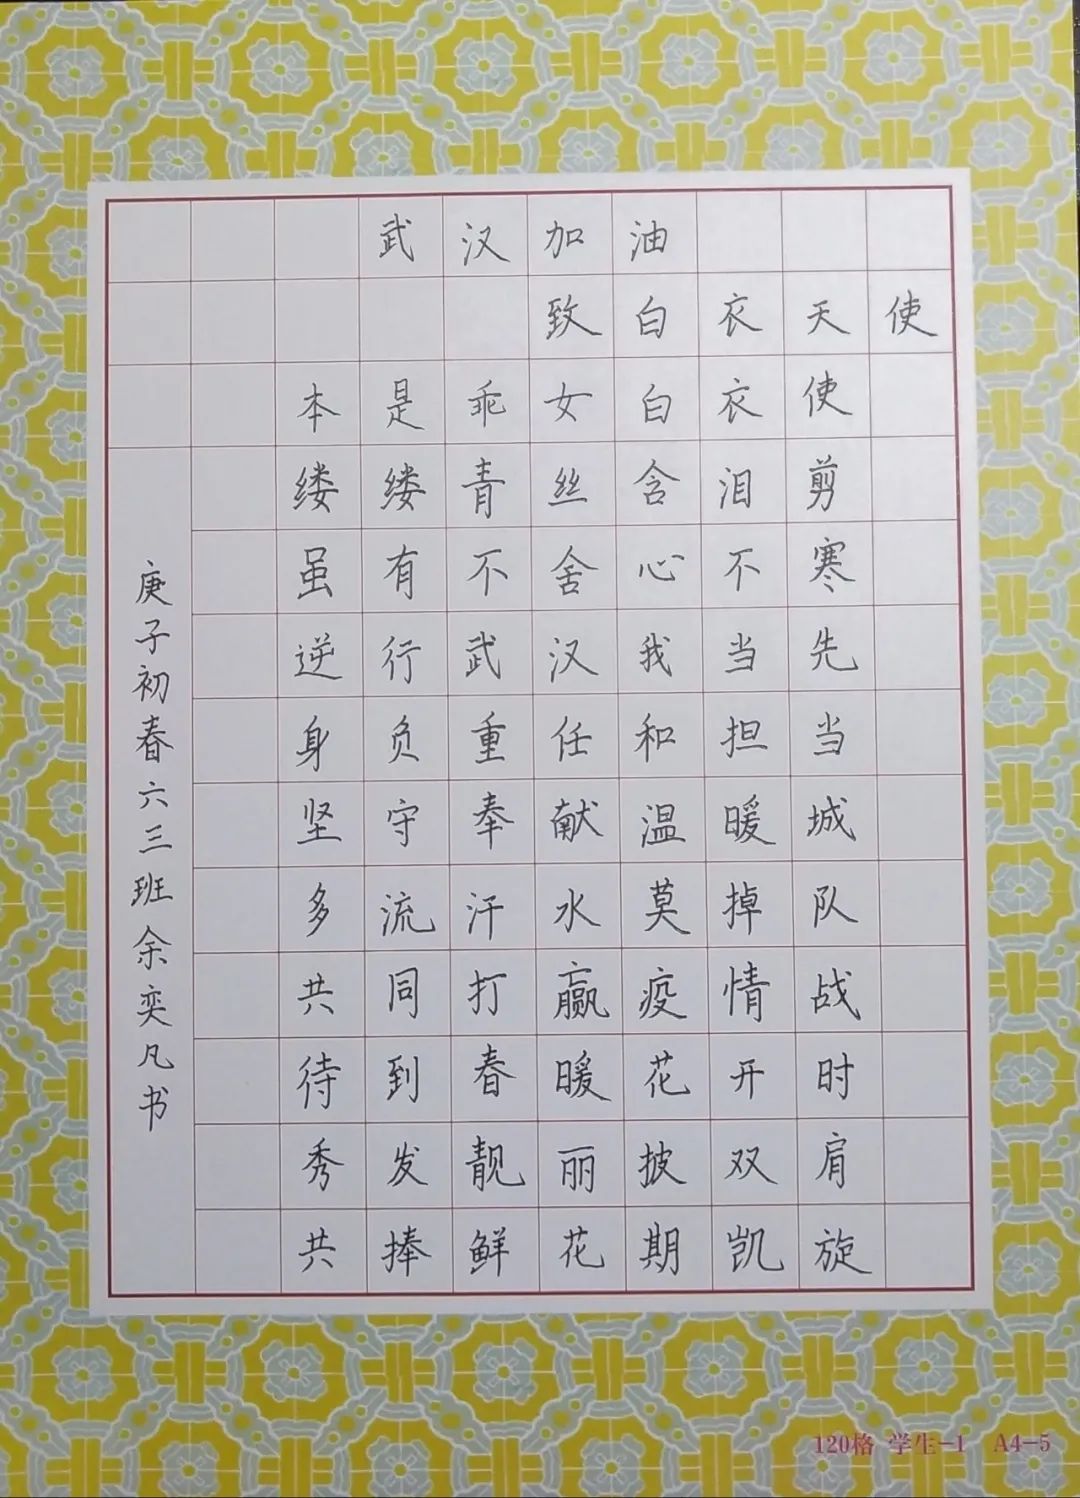 武汉加油
致白衣天使
本是乖女白衣使
缕缕青丝含泪剪
虽有不舍心不寒
逆行武汉我当先
身负重任和担当
坚守奉献温暖城
多流汗水莫掉队
共同打赢疫情战
待到春暖花开时
秀发靓丽披双肩
共捧鲜花期凯旋
庚子初春六三班余奕凡书
120格 学生-1 A4-5